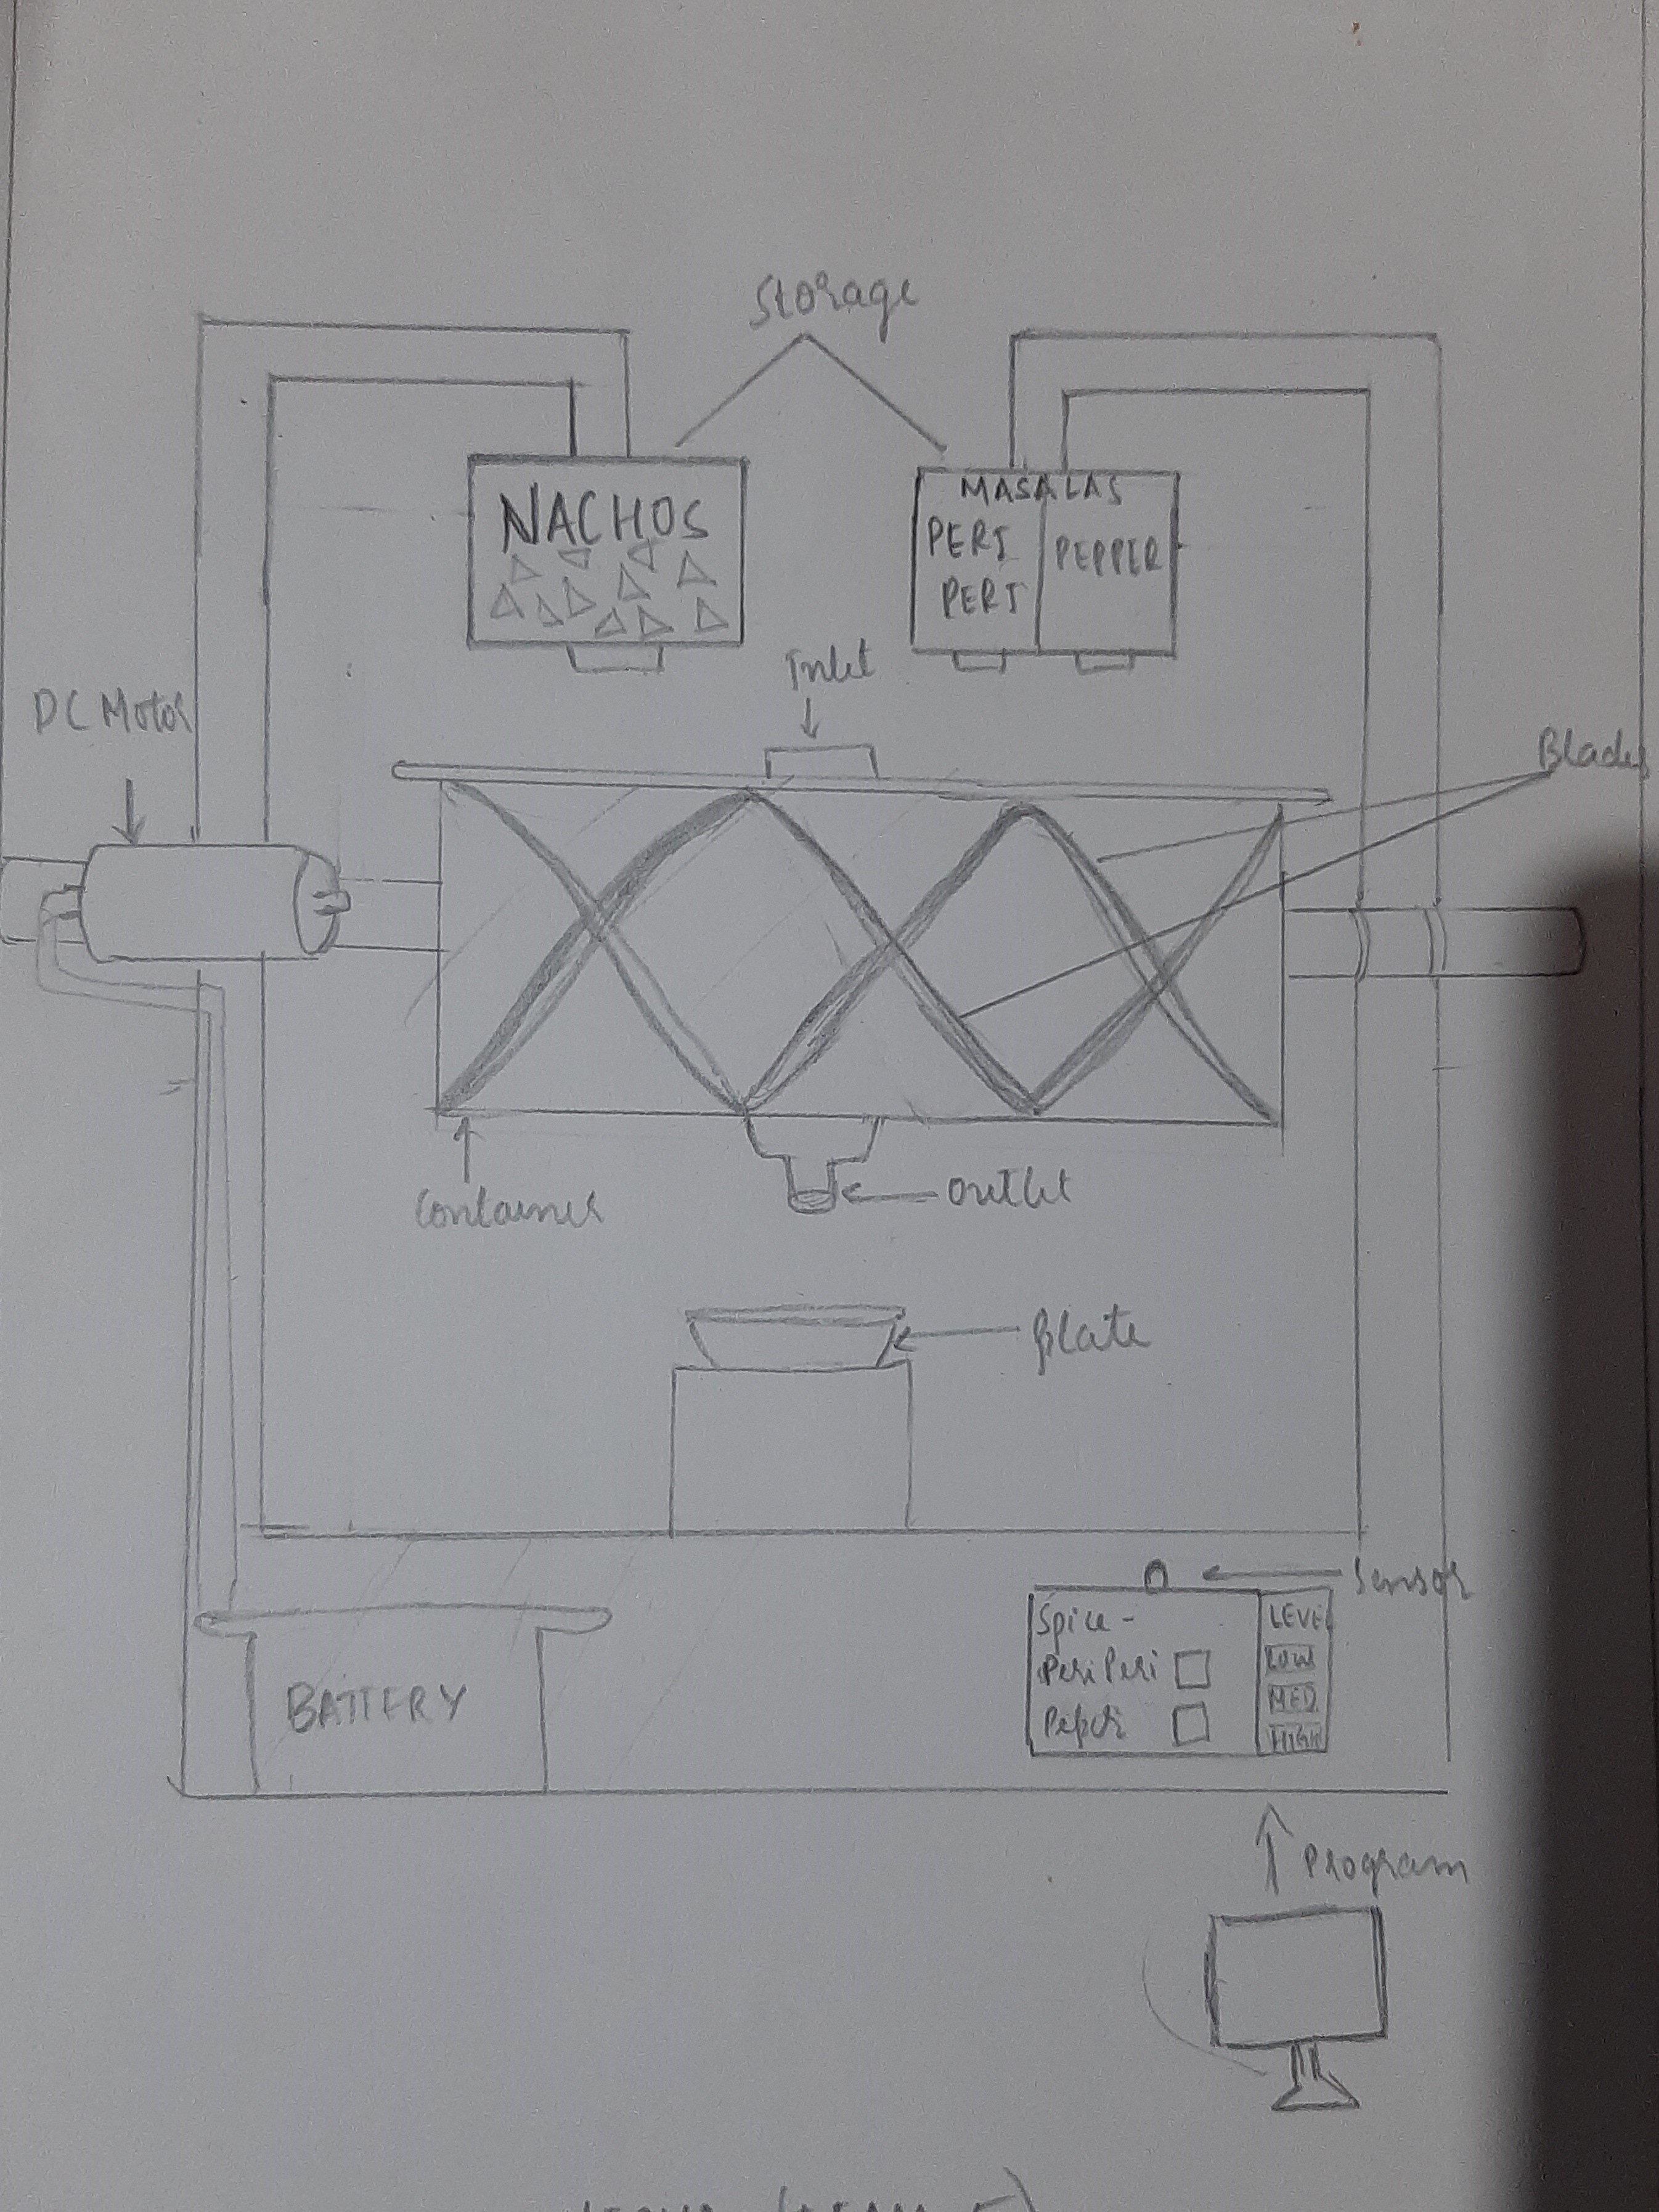 Storage
NACHOS
MASALAS
PERI
PERI
PEPPER
Inlet
DC Motor
Blades
Container
Outlet
Plate
Sensor
Spice -
Peri Peri
LEVEL
LOW
MED
HIGH
BATTERY
Program